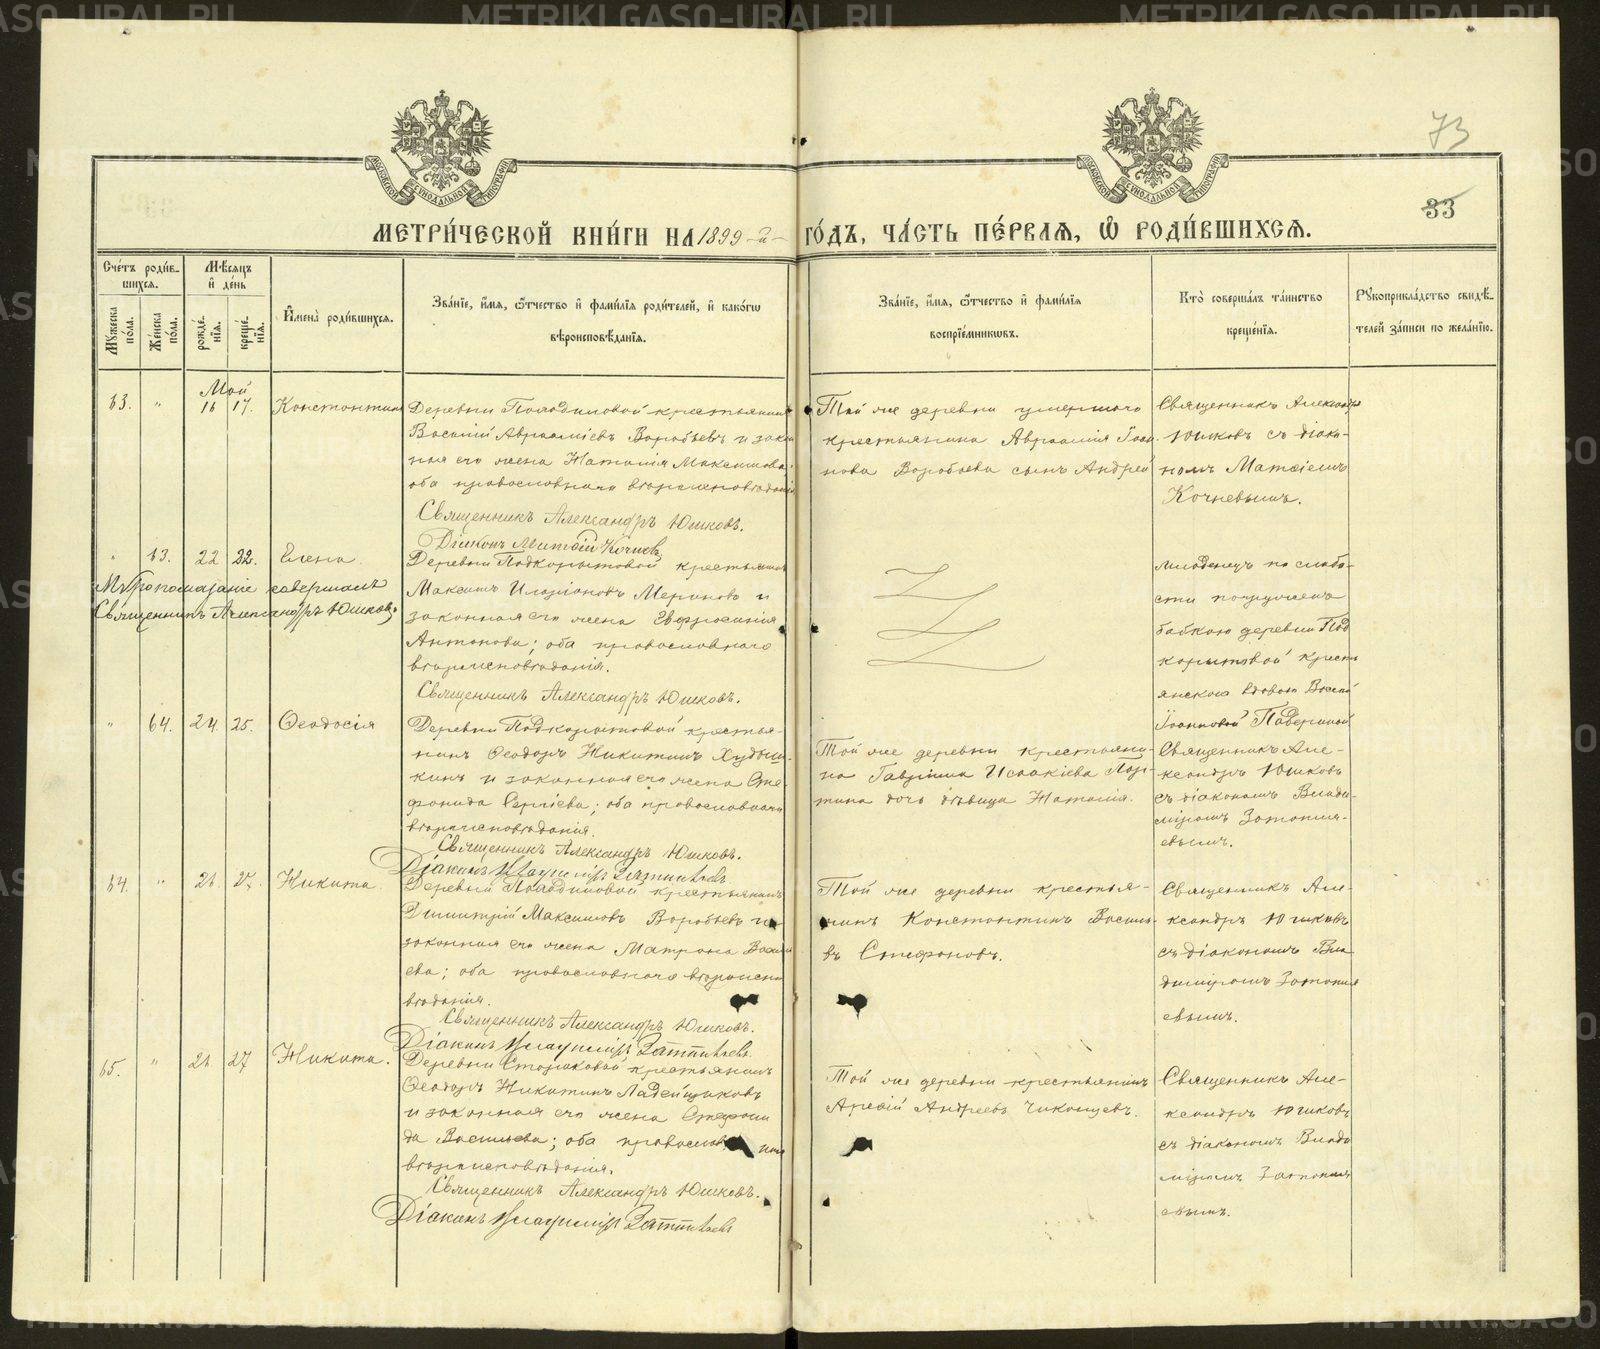 METRIKI.GASO-URAL.RU
73
33
МОСКОВСКОЙ СѴНОДАЛЬНОЙ ТИПОГРАФІИ
МОСКОВСКОЙ СѴНОДАЛЬНОЙ ТИПОГРАФІИ
МЕТРИ́ЧЕСКОЙ КНИ́ГИ НА 1899-й- ГО́ДЪ, ЧА́СТЬ ПЕ́РВАЯ, Ѡ РОДИ́ВШИХСЯ.
Сче́тъ роди́в-
шихся.
Мѣсяцъ
и де́нь
Му́жеска по́ла.
Же́нска по́ла.
рожде́нїя.
креще́нїя.
Имена̀ роди́вшихся.
Зва́нїе, и́мя, о́тчество и фами́лїя роди́телей, и како́гѡ
вѣроисповѣ́данїя.
Зва́нїе, и́мя, о́тчество и фами́лїя
воспрїе́мниковъ.
Кто̀ соверша́лъ та́инство
креще́нїя.
Рукоприкла́дство свидѣ́-
телей за́писи по жела́нїю.
Май
63. " 16 17. Константинъ
Деревни Полодиловой крестьянинъ
Василій Авраамiевъ Воробьевъ и закон
ная его жена Наталія Максимова;
оба православнаго вѣроисповѣданія
Священникъ Александръ Юшковъ.
Діаконъ Матѳій Кочневъ
Той же деревни умершаго
крестьянина Авраамія Іоан-
нова Воробьева сынъ Андрей
Священникъ Александръ
Юшковъ съ діако-
номъ Матѳіемъ
Кочневымъ.
" 63. 22 22. Елена
Мѵропомазаніе совершалъ
Священникъ Александръ Юшковъ
Деревни Подкорытовой крестьянинъ
Максимъ Иларіоновъ Мериновъ и
законная его жена Евфросинія
Антонова; оба православнаго
вѣроисповѣданія.
Священникъ Александръ Юшковъ.
младенецъ по слабо-
сти погруженъ
бабкою деревни Под
корытовой кресть
янскою вдовою
Іоанновой
" 64. 24 25. Ѳеодосія
Деревни Подкорытовой крестья-
нинъ Ѳеодоръ Никитинъ
и законная его жена Сте-
фанида Сергіева; оба православнаго
вѣроисповѣданія.
Священникъ Александръ Юшковъ.
Діаконъ Владимiръ
Той же деревни крестьяни-
на Гавріила Исаакіева
дочь дѣвица Наталія.
Священникъ Але-
ксандръ Юшковъ
съ діакономъ Влади-
міромъ
евымъ.
64. " 26 27. Никита
Деревни Полодиловой крестьянинъ
Димитрій Максимовъ Воробьевъ и
законная его жена Матрона Васильева
ева; оба православнаго вѣроиспо
вѣданія.
Священникъ Александръ Юшковъ.
Діаконъ Владимiръ
Той же деревни крестья-
нинъ Константинъ Василь-
въ Стефановъ.
Священникъ Але-
ксандръ Юшковъ
съ діакономъ Вла
диміромъ
евымъ.
65. " 26 27 Никита.
Деревни крестьянинъ
Ѳеодоръ Никитинъ Ладейщиковъ
и законная его жена Стефани
да Васильева; оба православнаго
вѣроисповѣданія.
Священникъ Александръ Юшковъ.
Діаконъ Владимiръ
Той же деревни крестьянинъ
Арефій Андреевъ
Священникъ Але-
ксандръ Юшковъ
съ діакономъ Влади
міромъ
евымъ.